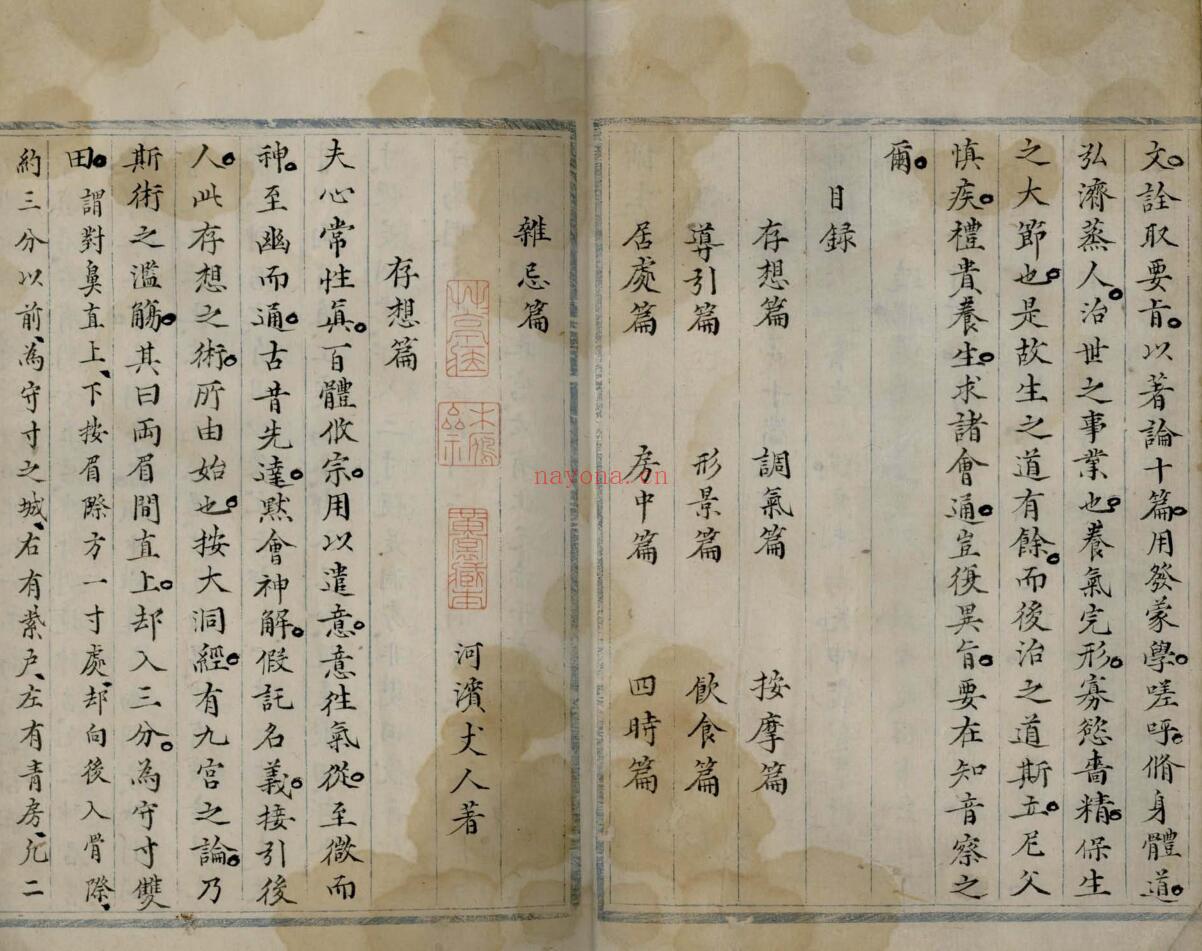 文詮取要旨以著論十篇用發蒙學嗟呼脩身體道
弘濟蒸人治世之事業也養氣完形寡慾嗇精保生
之大節也是故生之道有餘而後治之道斯立尼父
慎疾禮貴養生求諸會通豈復異旨要在知音察之
爾
目録
存想篇 調氣篇 按摩篇
導引篇 形景篇 飲食篇
居處篇 房中篇 四時篇
雜忌篇
河濱丈人著
存想篇
夫心常性真百體攸宗用以遣意意往氣從至微而
神至幽而通古昔先達默會神解假託名義接引後
人此存想之術所由始也按大洞經有九宮之論乃
斯術之濫觴其曰両眉間直上却入三分為守寸雙
田謂對鼻直上下按眉際方一寸處却向後入骨際
約三分以前為守寸之城右有紫戶左有青房凢二
nayona.cn